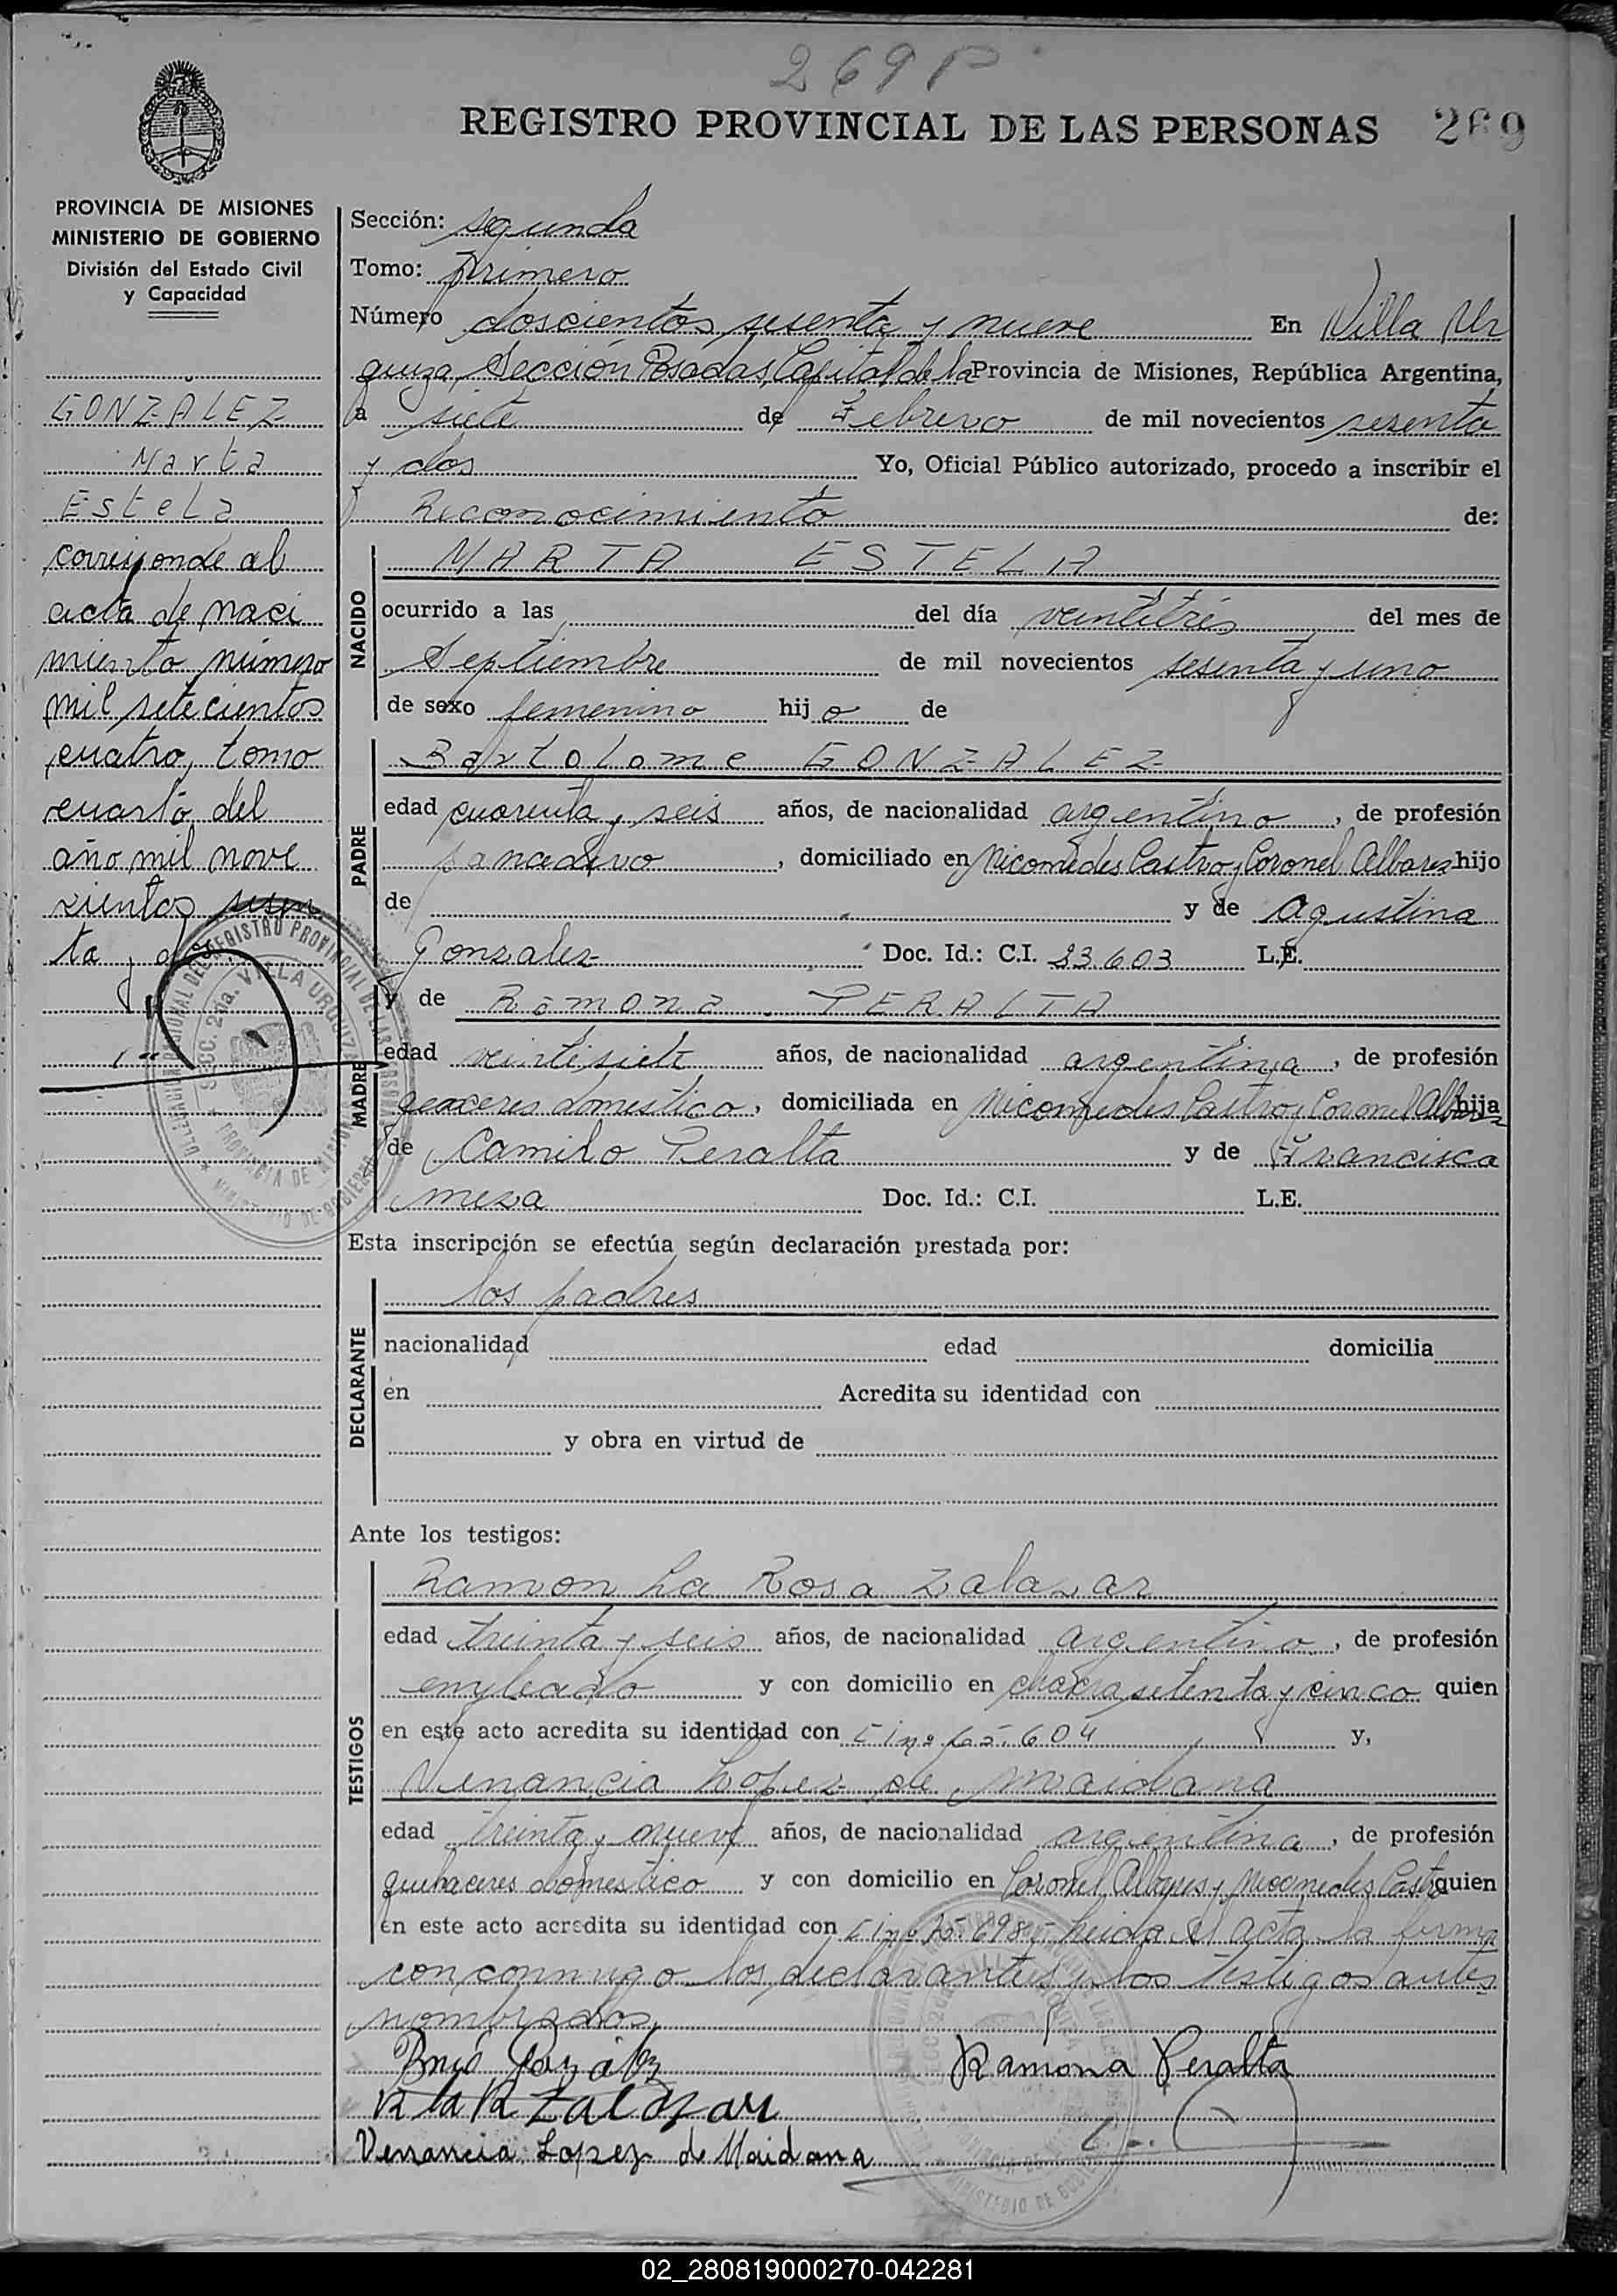 269 P
REGISTRO PROVINCIAL DE LAS PERSONAS 269
PROVINCIA DE MISIONES
MINISTERIO DE GOBIERNO
División del Estado Civil
y Capacidad
GONZÁLEZ
Marta
Estela
corresponde al
acta de naci
miento número
mil setecientos
cuatro, tomo
cuarto del
año mil nove
cientos sesen
ta y dos
Sección: segunda
Tomo: Primero
Número doscientos sesenta y nueve En Villa Ur
quiza, Sección Posadas, Capital de la Provincia de Misiones, República Argentina,
a siete de Febrero de mil novecientos sesenta
y dos Yo, Oficial Público autorizado, procedo a inscribir el
Reconocimiento de:
NACIDO
MARTA ESTELA
ocurrido a las del día veintitrés del mes de
Septiembre de mil novecientos sesenta y uno
de sexo femenino hij a de
PADRE
Bartolome GONZALEZ
edad cuarenta y seis años, de nacionalidad argentino, de profesión
panadero, domiciliado en Nicomedes Castro y Coronel Albares hijo
de y de Agustina
Gonzalez Doc. Id.: C.I. 23.603 L.E.
MADRE
y de Ramona PERALTA
edad veintisiete años, de nacionalidad argentina, de profesión
domestico, domiciliada en Nicomedes Castro y Coronel hija
de Camilo Peralta y de Francisca
meza Doc. Id.: C.I. L.E.
Esta inscripción se efectúa según declaración prestada por:
DECLARANTE
los padres
nacionalidad edad domicilia
en Acredita su identidad con
y obra en virtud de
Ante los testigos:
TESTIGOS
Ramon La Rosa Zalazar
edad treinta y seis años, de nacionalidad argentino, de profesión
empleado y con domicilio en chacra setenta y cinco quien
en este acto acredita su identidad con 604 y,
Venancia Lopez de Maidana
edad treinta y nueve años, de nacionalidad argentina, de profesión
quehaceres domestico y con domicilio en Coronel Albares y Nicomedes Castro quien
en este acto acredita su identidad con Leida el acta la firman
con conmigo los declarantes y los testigos antes
nombrados.
Ramona Peralta
R la R Zalazar
Venancia Lopez de Maidana
SECC. 2da. VILLA URQUIZA
PROVINCIA DE MISIONES
MINISTERIO DE GOBIERNO
02_280819000270-042281